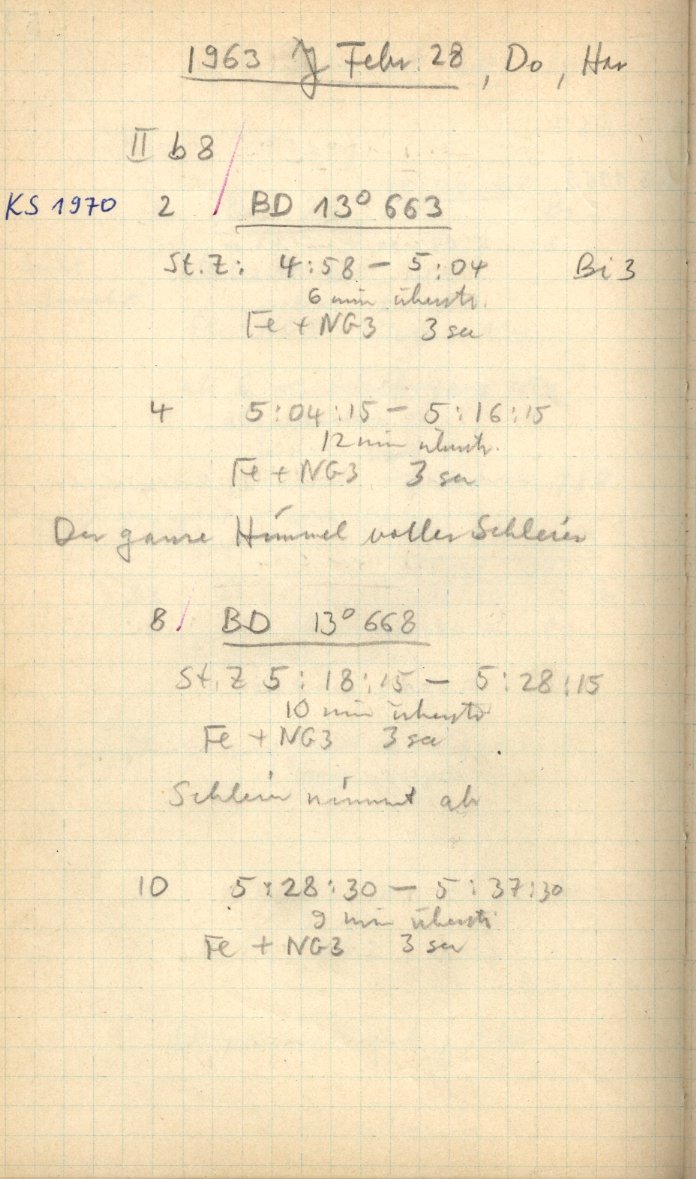 1963 Febr. 28, Do, Har
II b 8
KS 1970 2 BD 13° 663
St.Z: 4:58 – 5:04 Bi 3
6 min überstr.
Fe + NG3 3 sec
4 5:04:15 – 5:16:15
12 min überstr.
Fe + NG3 3 sec
Der ganze Himmel voller Schleier
8 BD 13° 668
St.Z 5:18:15 – 5:28:15
10 min überstr
Fe + NG3 3 sec
Schleier nimmt ab
10 5:28:30 – 5:37:30
9 min überstr
Fe + NG3 3 sec